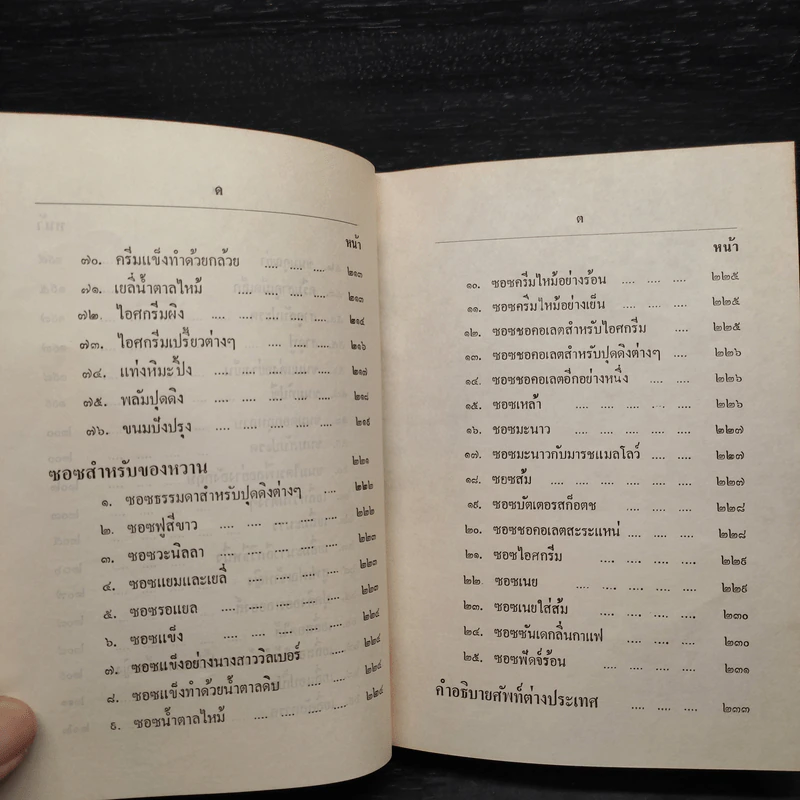 ด
หน้า
๗๐. ครีมแข็งทำด้วยกล้วย .... .... .... ๒๑๓
๗๑. เยลี่น้ำตาลไหม้ .... .... .... ๒๑๓
๗๒. ไอศกรีมผิง .... .... .... .... ๒๑๔
๗๓. ไอศกรีมเปรี้ยวต่างๆ .... .... .... ๒๑๖
๗๔. แท่งหิมะปิ้ง .... .... .... .... ๒๑๗
๗๕. พลัมปุดดิง .... .... .... .... ๒๑๘
๗๖. ขนมปังปรุง .... .... .... .... ๒๑๙
ซอซสำหรับของหวาน ๒๒๑
๑. ซอซธรรมดาสำหรับปุดดิงต่างๆ .... ๒๒๒
๒. ซอซฟูสีขาว .... .... .... .... ๒๒๒
๓. ซอซวะนิลลา .... .... .... .... ๒๒๓
๔. ซอซแยมและเยลี่ .... .... .... ๒๒๓
๕. ซอซรอแยล .... .... .... .... ๒๒๓
๖. ซอซแข็ง .... .... .... .... ๒๒๔
๗. ซอซแข็งอย่างนางสาววิลเบอร์ .... ๒๒๔
๘. ซอซแข็งทำด้วยน้ำตาลดิบ .... .... ๒๒๔
๙. ซอซน้ำตาลไหม้ .... .... .... .... ๒๒๔
ต
หน้า
๑๐. ซอซครีมไหม้อย่างร้อน .... .... .... ๒๒๕
๑๑. ซอซครีมไหม้อย่างเย็น .... .... .... ๒๒๕
๑๒. ซอซชอคอเลตสำหรับไอศกรีม .... ๒๒๕
๑๓. ซอซชอคอเลตสำหรับปุดดิงต่างๆ .... ๒๒๖
๑๔. ซอซชอคอเลตอีกอย่างหนึ่ง .... .... ๒๒๖
๑๕. ซอซเหล้า .... .... .... .... .... ๒๒๖
๑๖. ซอซมะนาว .... .... .... .... ๒๒๗
๑๗. ซอซมะนาวกับมารชแมลโลว์ .... .... ๒๒๗
๑๘. ซอซส้ม .... .... .... .... .... ๒๒๗
๑๙. ซอซบัตเตอรสก็อตช .... .... .... ๒๒๘
๒๐. ซอซชอคอเลตสะระแหน่ .... .... ๒๒๘
๒๑. ซอซไอศกรีม .... .... .... .... ๒๒๙
๒๒ ซอซเนย .... .... .... .... .... ๒๒๙
๒๓. ซอซเนยใส่ส้ม .... .... .... .... ๒๓๐
๒๔. ซอซซันเดกลิ่นกาแฟ .... .... .... ๒๓๐
๒๕. ซอซฟัดจ์ร้อน .... .... .... .... ๒๓๑
คำอธิบายศัพท์ต่างประเทศ .... .... .... ๒๓๓